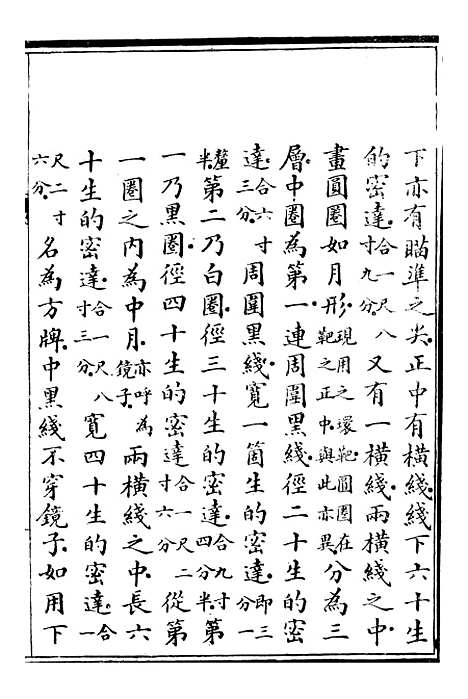 下亦有瞄準之尖正中有橫綫綫下六十生
的密達合一尺八寸九分又有一橫綫兩橫綫之中
畫圓圈如月形現用之環靶圓圈在靶之正中與此亦異分為三
層中圈為第一連周圍黑綫徑二十生的密
達合六寸三分周圍黑綫寬一箇生的密達即三分一
釐半第二乃白圈徑三十生的密達合九寸四分半第
一乃黑圈徑四十生的密達合一尺二寸六分從第
一圈之內為中月亦呼為鏡子兩橫綫之中長六
十生的密達合一尺八寸三分寬四十生的密達合一
尺二寸六分名為方牌中黑綫不穿鏡子如用下